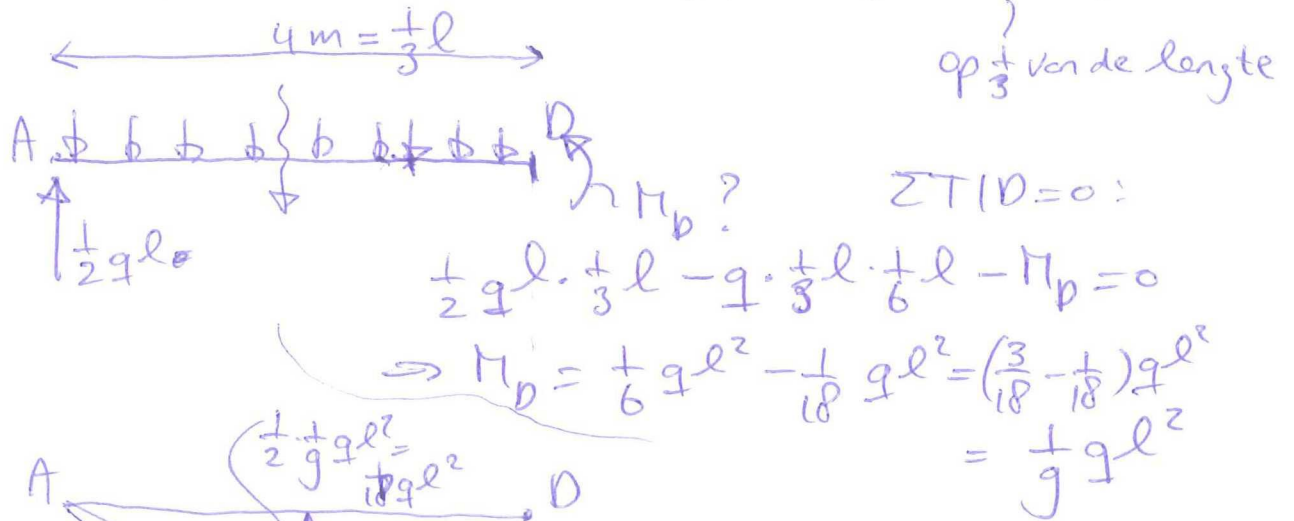 4 m = 1/3 l
op 1/3 van de lengte
A D
M_D ?
ΣT|D = 0 :
1/2 q l
1/2 q l · 1/3 l − q · 1/3 l · 1/6 l − M_D = 0
⇒ M_D = 1/6 q l² − 1/18 q l² = (3/18 − 1/18) q l²
= 1/9 q l²
1/2 · 1/9 q l² =
1/18 q l²
A D